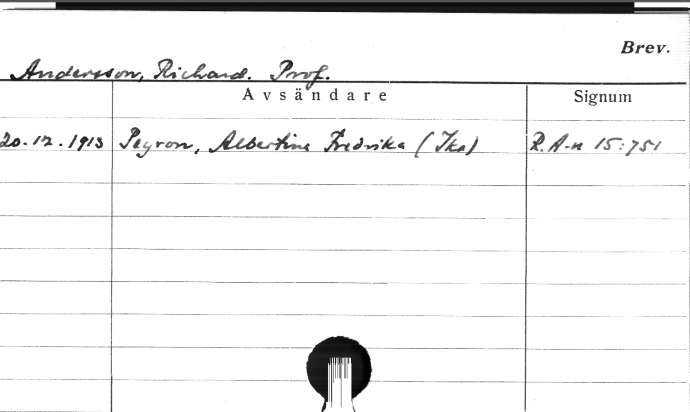 Brev.
Andersson, Richard. Prof.
Avsändare Signum
20.12.1913 Peyron, Albertina Fredrika (Ika) R.A-n 15:751